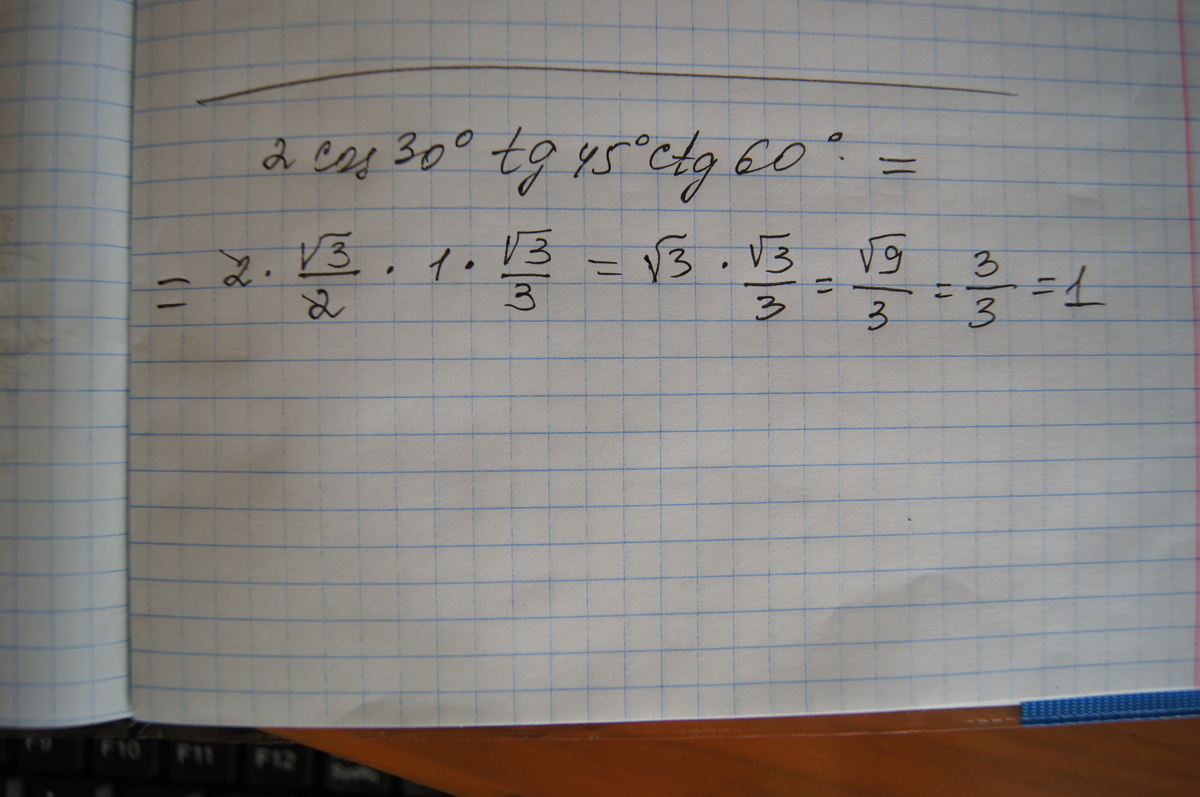 2 cos 30° tg 45° ctg 60° =
= 2 · √3/2 · 1 · √3/3 = √3 · √3/3 = √9/3 = 3/3 = 1
F9 F10 F11 F12